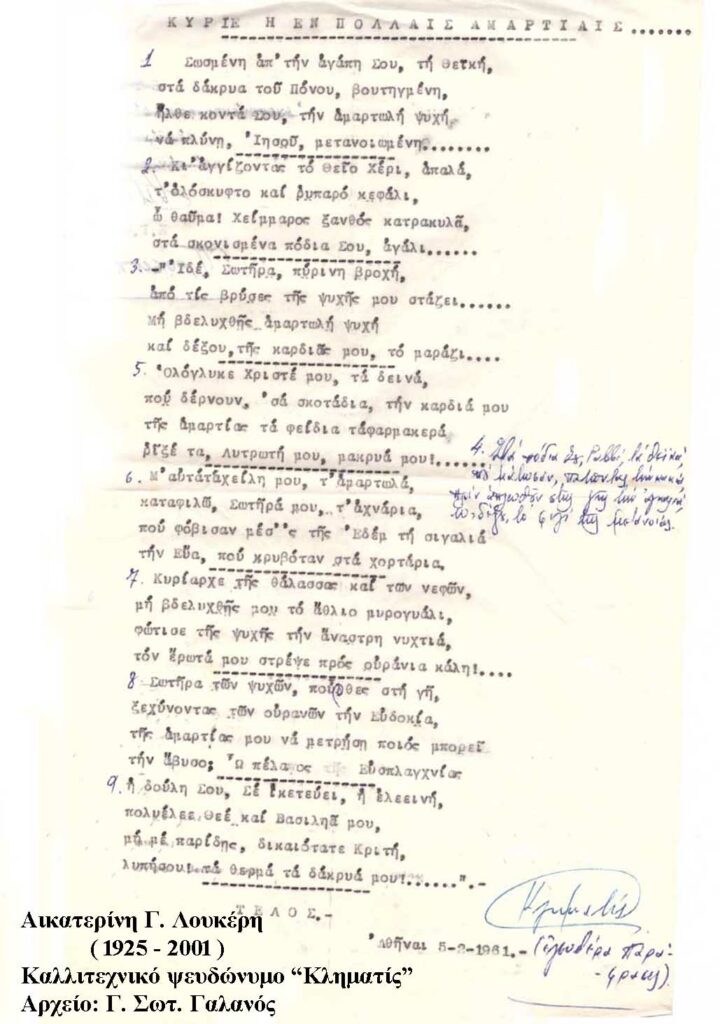 ΚΥΡΙΕ Η ΕΝ ΠΟΛΛΑΙΣ ΑΜΑΡΤΙΑΙΣ.......
1 Σωσμένη ἀπ'τήν ἀγάπη Σου, τή θεϊκή,
στά δάκρυα τοῦ Πόνου, βουτηγμένη,
ἦλθε κοντά Σου, τήν ἁμαρτωλή ψυχή,
νά πλύνῃ, Ἰησοῦ, μετανοιωμένη........
2. Κι'ἀγγίζοντας τό θεῖο Χέρι, ἀπαλά,
τ'ὁλόσκυφτο καί ρυπαρό κεφάλι,
ὦ θαῦμα! Χείμμαρος ξανθός κατρακυλᾶ,
στά σκονισμένα πόδια Σου, ἀγάλι......
3. -"Ἰδέ, Σωτῆρα, πύρινη βροχή,
ἀπό τίς βρύσες τῆς ψυχῆς μου στάζει......
Μή βδελυχθῆς ἁμαρτωλή ψυχή
καί δέξου,τῆς καρδιᾶς μου, τό μαράζι....
5. Ὁλόγλυκε Χριστέ μου, τά δεινά,
πού δέρνουν, 'σά σκοτάδια, τήν καρδιά μου
τῆς ἁμαρτίας τά φείδια τάφαρμακερά
βύζέ τα, Λυτρωτή μου, μακρυά μου!......
4. Στά πόδια Σου, Ραββί, τά θεϊκά
τῆς μετανοίας.
6. Μ'αὐτάτάχείλη μου, τ'ἁμαρτωλά,
καταφιλῶ, Σωτῆρά μου, τ'ἀχνάρια,
πού φόβισαν μέσ''ς τῆς Ἐδέμ τή σιγαλιά
τήν Εὔα, πού κρυβόταν στά χορτάρια,
7. Κυρίαρχε τῆς θάλασσας καί τῶν νεφῶν,
μή βδελυχθῆς μου τό ἄθλιο μυρογυάλι,
φώτισε τῆς ψυχῆς τήν ἄναστρη νυχτιά,
τόν ἔρωτά μου στρέψε πρός οὐράνια κάλη!....
8 Σωτῆρα τῶν ψυχῶν, ποὖρθες στή γῆ,
ξεχύνοντας τῶν οὐρανῶν τήν Εὐδοκία,
τῆς ἁμαρτίας μου νά μετρήση ποιός μπορεῖ
τήν ἄβυσο; Ὦ πέλαγος τῆς Εὐσπλαγχνίας
9. ἡ δούλη Σου, Σέ ἱκετεύει, ἡ ἐλεεινή,
πολυέλεε Θεέ καί Βασιληᾶ μου,
μή μέ παρίδης, δικαιότατε Κριτή,
λυπήσου! τά θερμά τά δάκρυά μου!......".-
ΤΕΛΟΣ.-
Κληματίς
Ἀθῆναι 5-2-1961.- (ἐλευθέρα παρά-
-φρασις).
Αικατερίνη Γ. Λουκέρη
( 1925 - 2001 )
Καλλιτεχνικό ψευδώνυμο “Κληματίς”
Αρχείο: Γ. Σωτ. Γαλανός